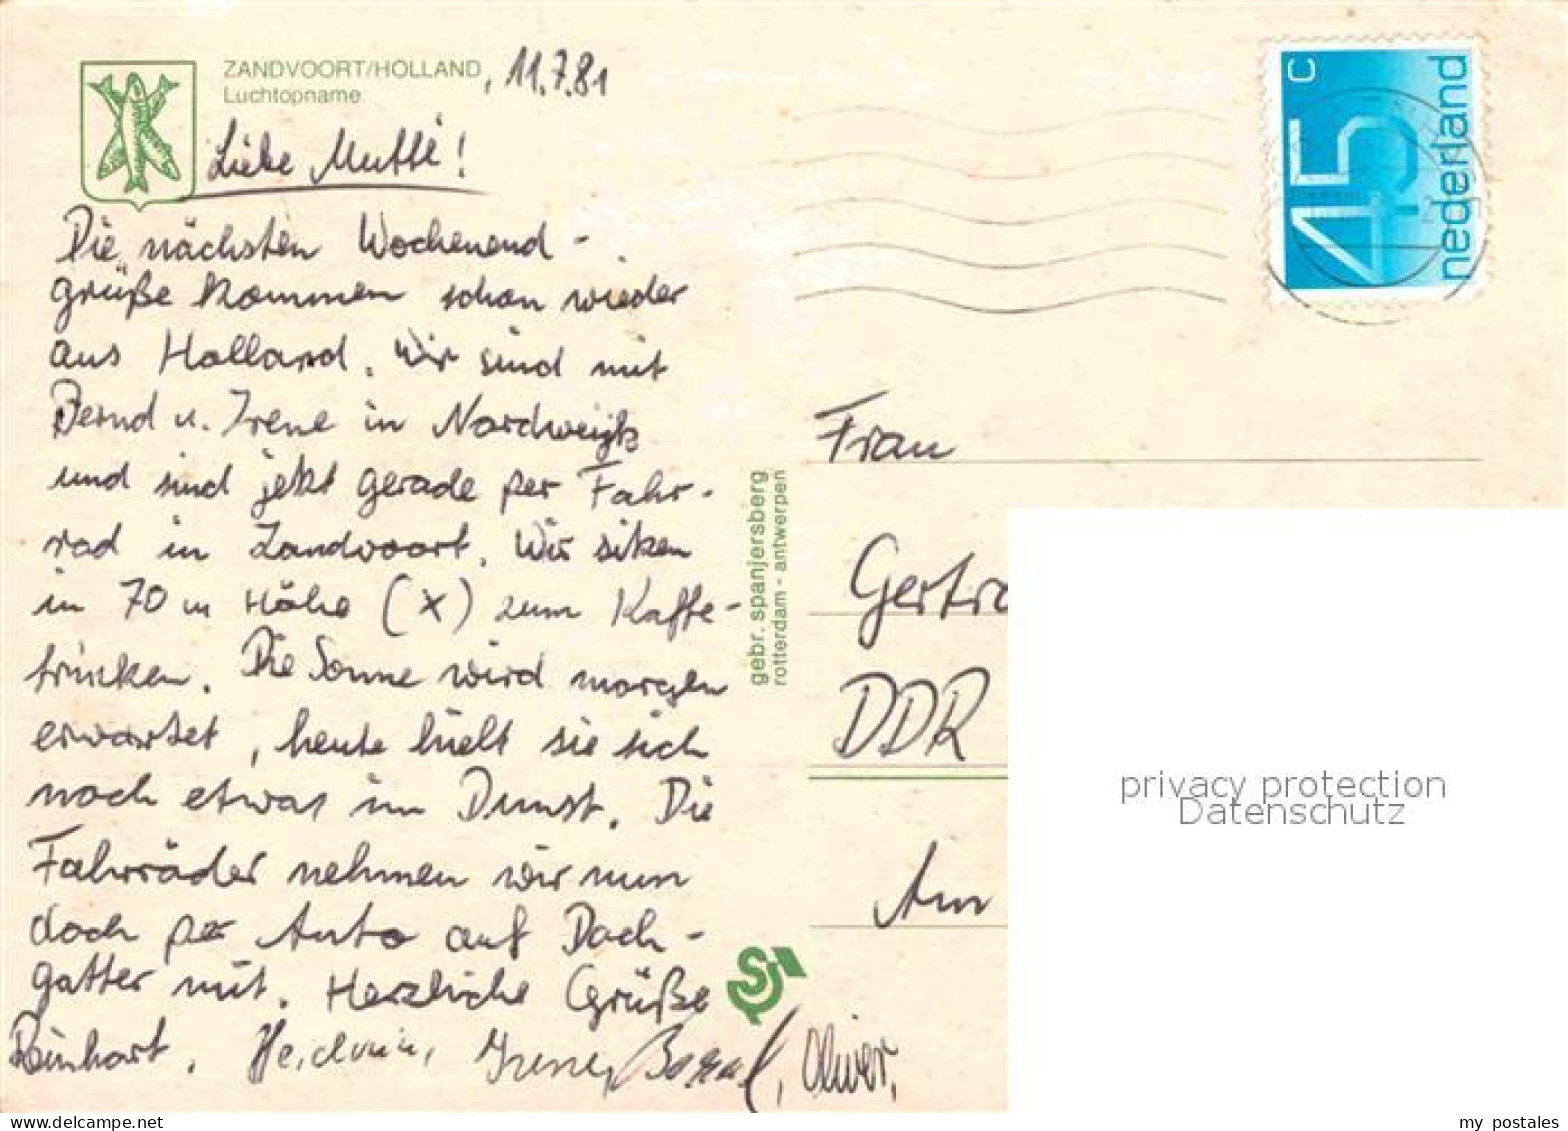 ZANDVOORT/HOLLAND, 11.7.81
Luchtopname
Liebe Mutti!
Die nächsten Wochenend-
grüße kommen schon wieder
aus Holland. Wir sind mit
Bernd u. Irene in Nordweigk
und sind jetzt gerade per Fahr-
rad in Zandvoort. Wir sitzen
in 70 m Höhe (x) zum Kaffe-
trinken. Die Sonne wird morgen
erwartet, heute hielt sie sich
noch etwas im Dunst. Die
Fahrräder nehmen wir nun
doch per Auto auf Dach-
gatter mit. Herzliche Grüße
Reinhart, Irene, Bernd, Oliver.
gebr. spanjersberg
rotterdam - antwerpen
45 c
nederland
Frau
Gertr
DDR
Am
privacy protection
Datenschutz
my postales